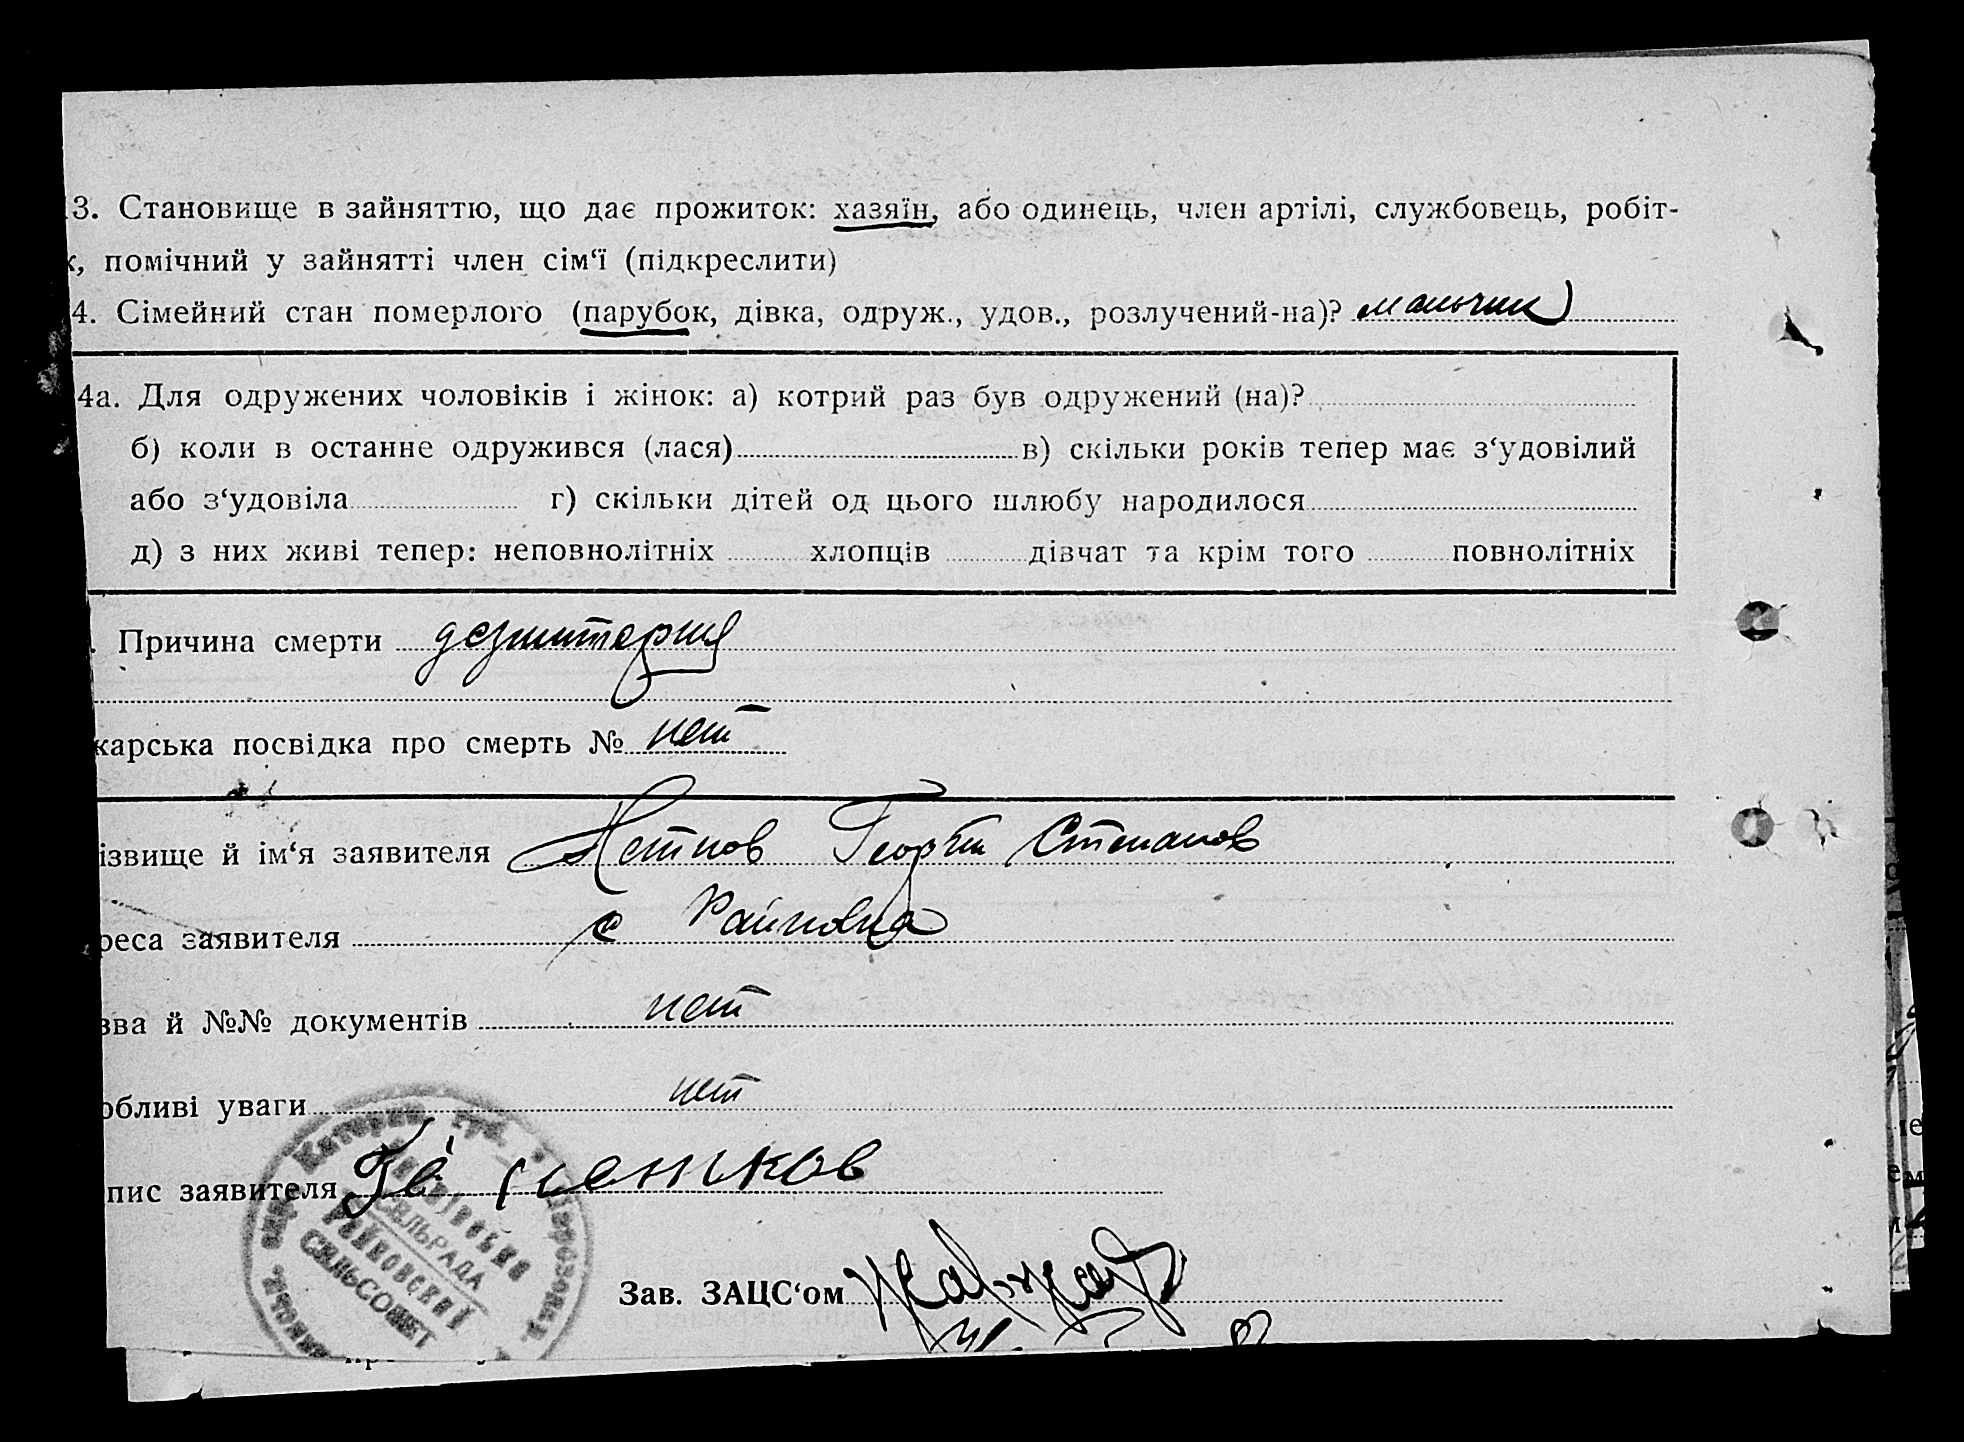 3. Становище в зайняттю, що дає прожиток: хазяїн, або одинець, член артілі, службовець, робіт-
к, помічний у зайнятті член сім‘ї (підкреслити)
4. Сімейний стан померлого (парубок, дівка, одруж., удов., розлучений-на)? мальчик
4а. Для одружених чоловіків і жінок: а) котрий раз був одружений (на)?
б) коли в останне одружився (лася) в) скільки років тепер має з‘удовілий
або з‘удовіла г) скільки дітей од цього шлюбу народилося
д) з них живі тепер: неповнолітніх хлопців дівчат та крім того повнолітніх
. Причина смерти дезинтерия
карська посвідка про смерть № нет
ізвище й ім‘я заявителя Георги Степанов
реса заявителя с Райновка
зва й №№ документів нет
обливі уваги нет
пис заявителя
Зав. ЗАЦС‘ом
СЕЛЬРАДА
РАЙНОВСКИЙ
СЕЛЬСОВЕТ